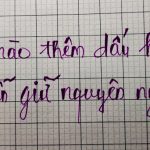 nào thêm dấu
giữ nguyên